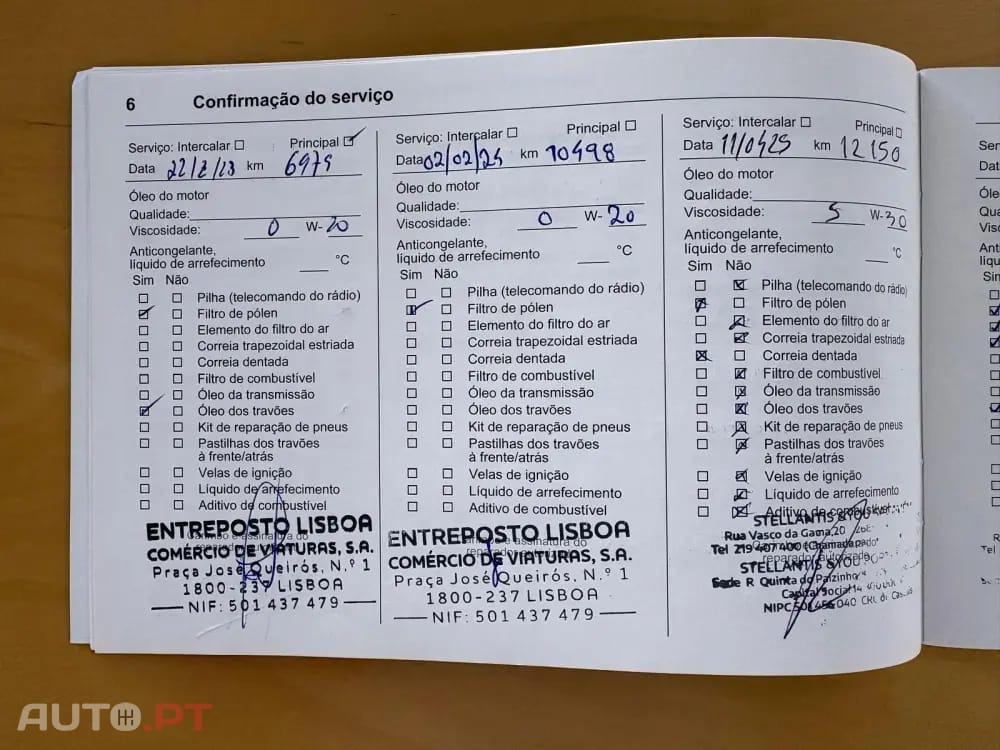 6 Confirmação do serviço
Serviço: Intercalar ☐ Principal ☑
Data 22/2/23 km 6979
Óleo do motor
Qualidade:
Viscosidade: 0 W- 20
Anticongelante,
líquido de arrefecimento °C
Sim Não
☐ ☐ Pilha (telecomando do rádio)
☑ ☐ Filtro de pólen
☐ ☐ Elemento do filtro do ar
☐ ☐ Correia trapezoidal estriada
☐ ☐ Correia dentada
☐ ☐ Filtro de combustível
☐ ☐ Óleo da transmissão
☑ ☐ Óleo dos travões
☐ ☐ Kit de reparação de pneus
☐ ☐ Pastilhas dos travões
à frente/atrás
☐ ☐ Velas de ignição
☐ ☐ Líquido de arrefecimento
☐ ☐ Aditivo de combustível
ENTREPOSTO LISBOA
COMÉRCIO DE VIATURAS, S.A.
Praça José Queirós, N.º 1
1800-237 LISBOA
NIF: 501 437 479
Serviço: Intercalar ☐ Principal ☐
Data 02/02/24 km 10498
Óleo do motor
Qualidade:
Viscosidade: 0 W- 20
Anticongelante,
líquido de arrefecimento °C
Sim Não
☐ ☐ Pilha (telecomando do rádio)
☑ ☐ Filtro de pólen
☐ ☐ Elemento do filtro do ar
☐ ☐ Correia trapezoidal estriada
☐ ☐ Correia dentada
☐ ☐ Filtro de combustível
☐ ☐ Óleo da transmissão
☐ ☐ Óleo dos travões
☐ ☐ Kit de reparação de pneus
☐ ☐ Pastilhas dos travões
à frente/atrás
☐ ☐ Velas de ignição
☐ ☐ Líquido de arrefecimento
☐ ☐ Aditivo de combustível
ENTREPOSTO LISBOA
COMÉRCIO DE VIATURAS, S.A.
Praça José Queirós, N.º 1
1800-237 LISBOA
NIF: 501 437 479
Serviço: Intercalar ☐ Principal ☐
Data 11/04/25 km 12150
Óleo do motor
Qualidade:
Viscosidade: 5 W- 30
Anticongelante,
líquido de arrefecimento °C
Sim Não
☐ ☒ Pilha (telecomando do rádio)
☒ ☐ Filtro de pólen
☐ ☒ Elemento do filtro do ar
☐ ☒ Correia trapezoidal estriada
☒ ☐ Correia dentada
☐ ☒ Filtro de combustível
☐ ☒ Óleo da transmissão
☐ ☒ Óleo dos travões
☐ ☒ Kit de reparação de pneus
☐ ☒ Pastilhas dos travões
à frente/atrás
☐ ☒ Velas de ignição
☐ ☒ Líquido de arrefecimento
☐ ☒ Aditivo de combustível
STELLANTIS &YOU
Rua Vasco da Gama, 20
Tel 219 407 400 (Chamada
STELLANTIS &YOU
Sede R Quinta do Paizinho
Capital Social
NIPC 501 456 040
AUTO.PT